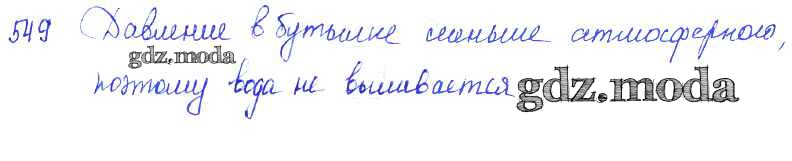 549 Давление в бутылке меньше атмосферного,
gdz.moda
поэтому вода не выливается
gdz.moda